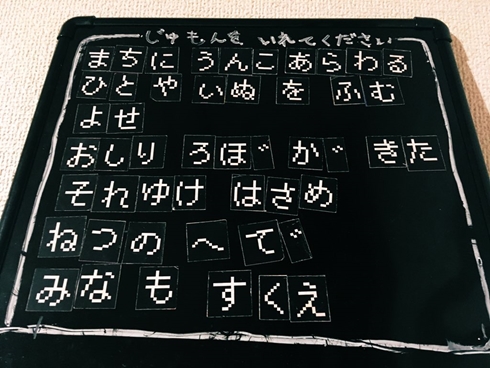 じゅもんを いれてください
まちに うんこあらわる
ひとや いぬを ふむ
よせ
おしり ろぼ゛か゛ きた
それゆけ はさめ
ねつの へて゛
みなも すくえ